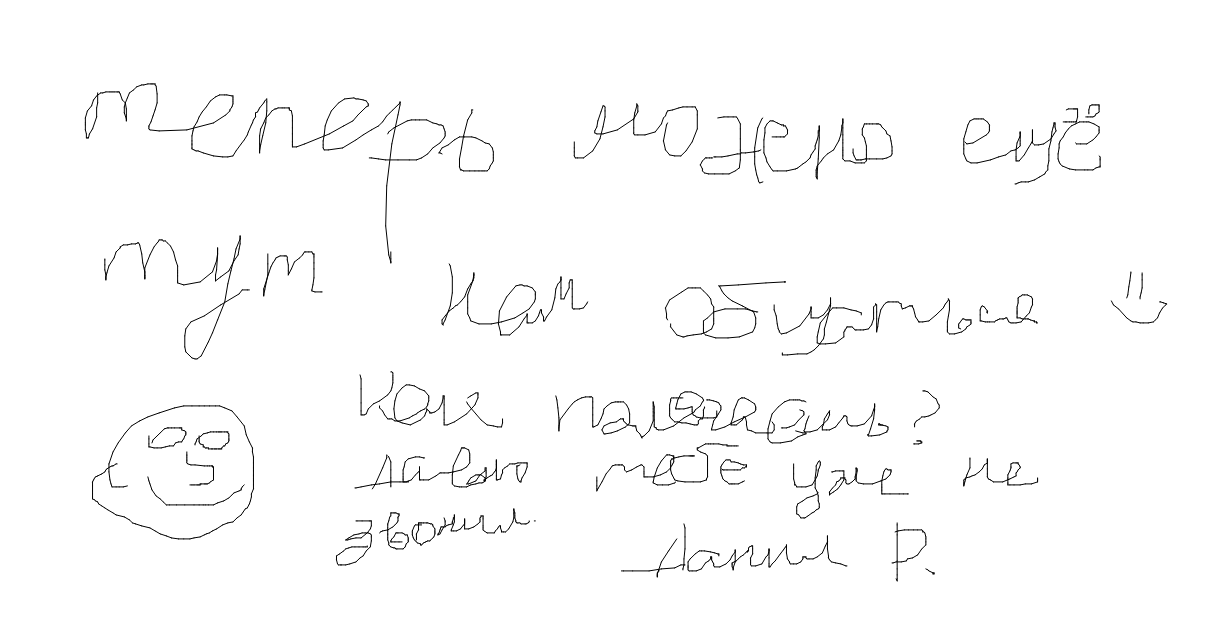 теперь можено ещё
тут нам общаться
Как поживаешь?
давно тебе уже не
звонил.
Данил Р.